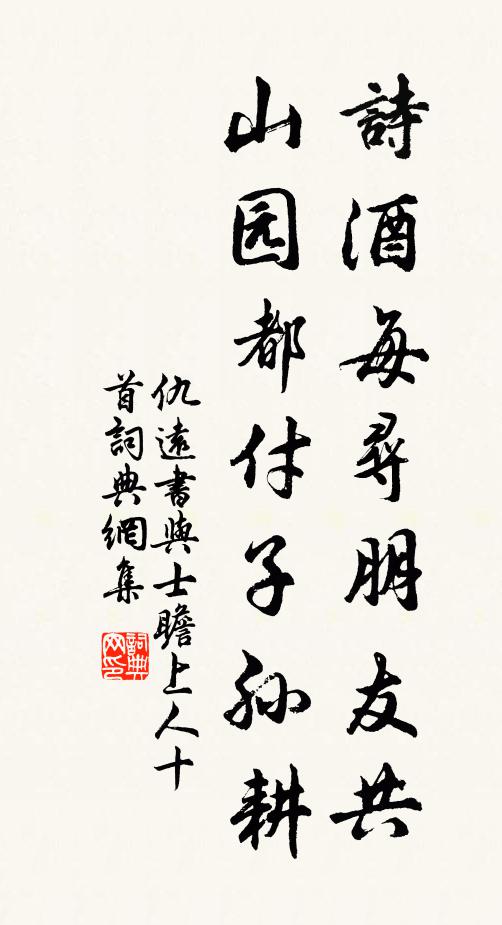 詩酒每尋朋友共
山园都付子孙耕
仇遠書與士瞻上人十
首詞典網集
詞典
网印